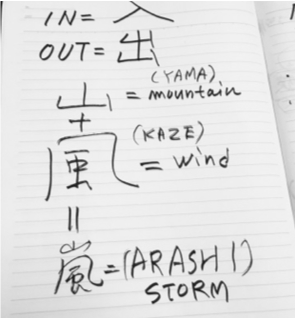 IN= 入
OUT= 出
山 = (YAMA) mountain
+
風 (KAZE) = wind
॥
嵐=(ARASHI)
STORM